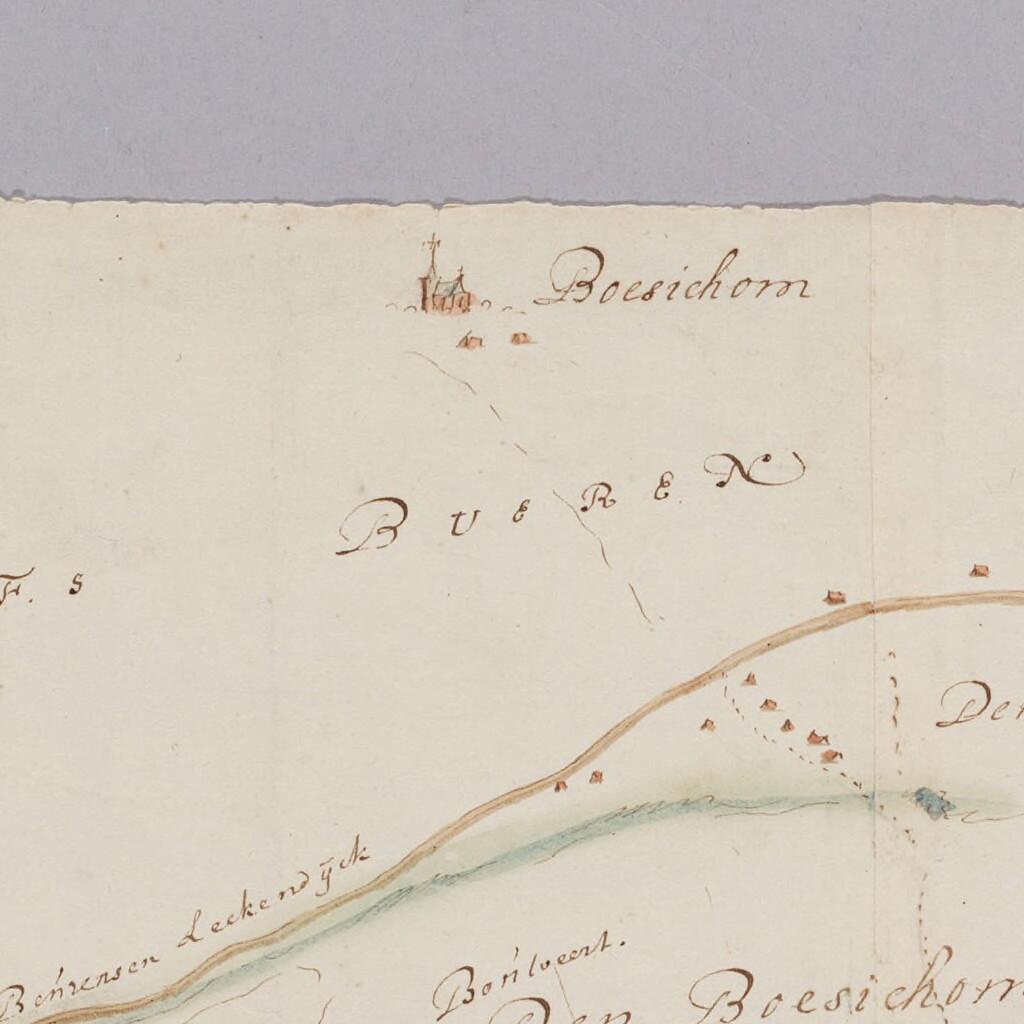 Boesichom
BUEREN
F. S
Der
Beurensen Leckendÿck
Bouweert.
Den Boesichom